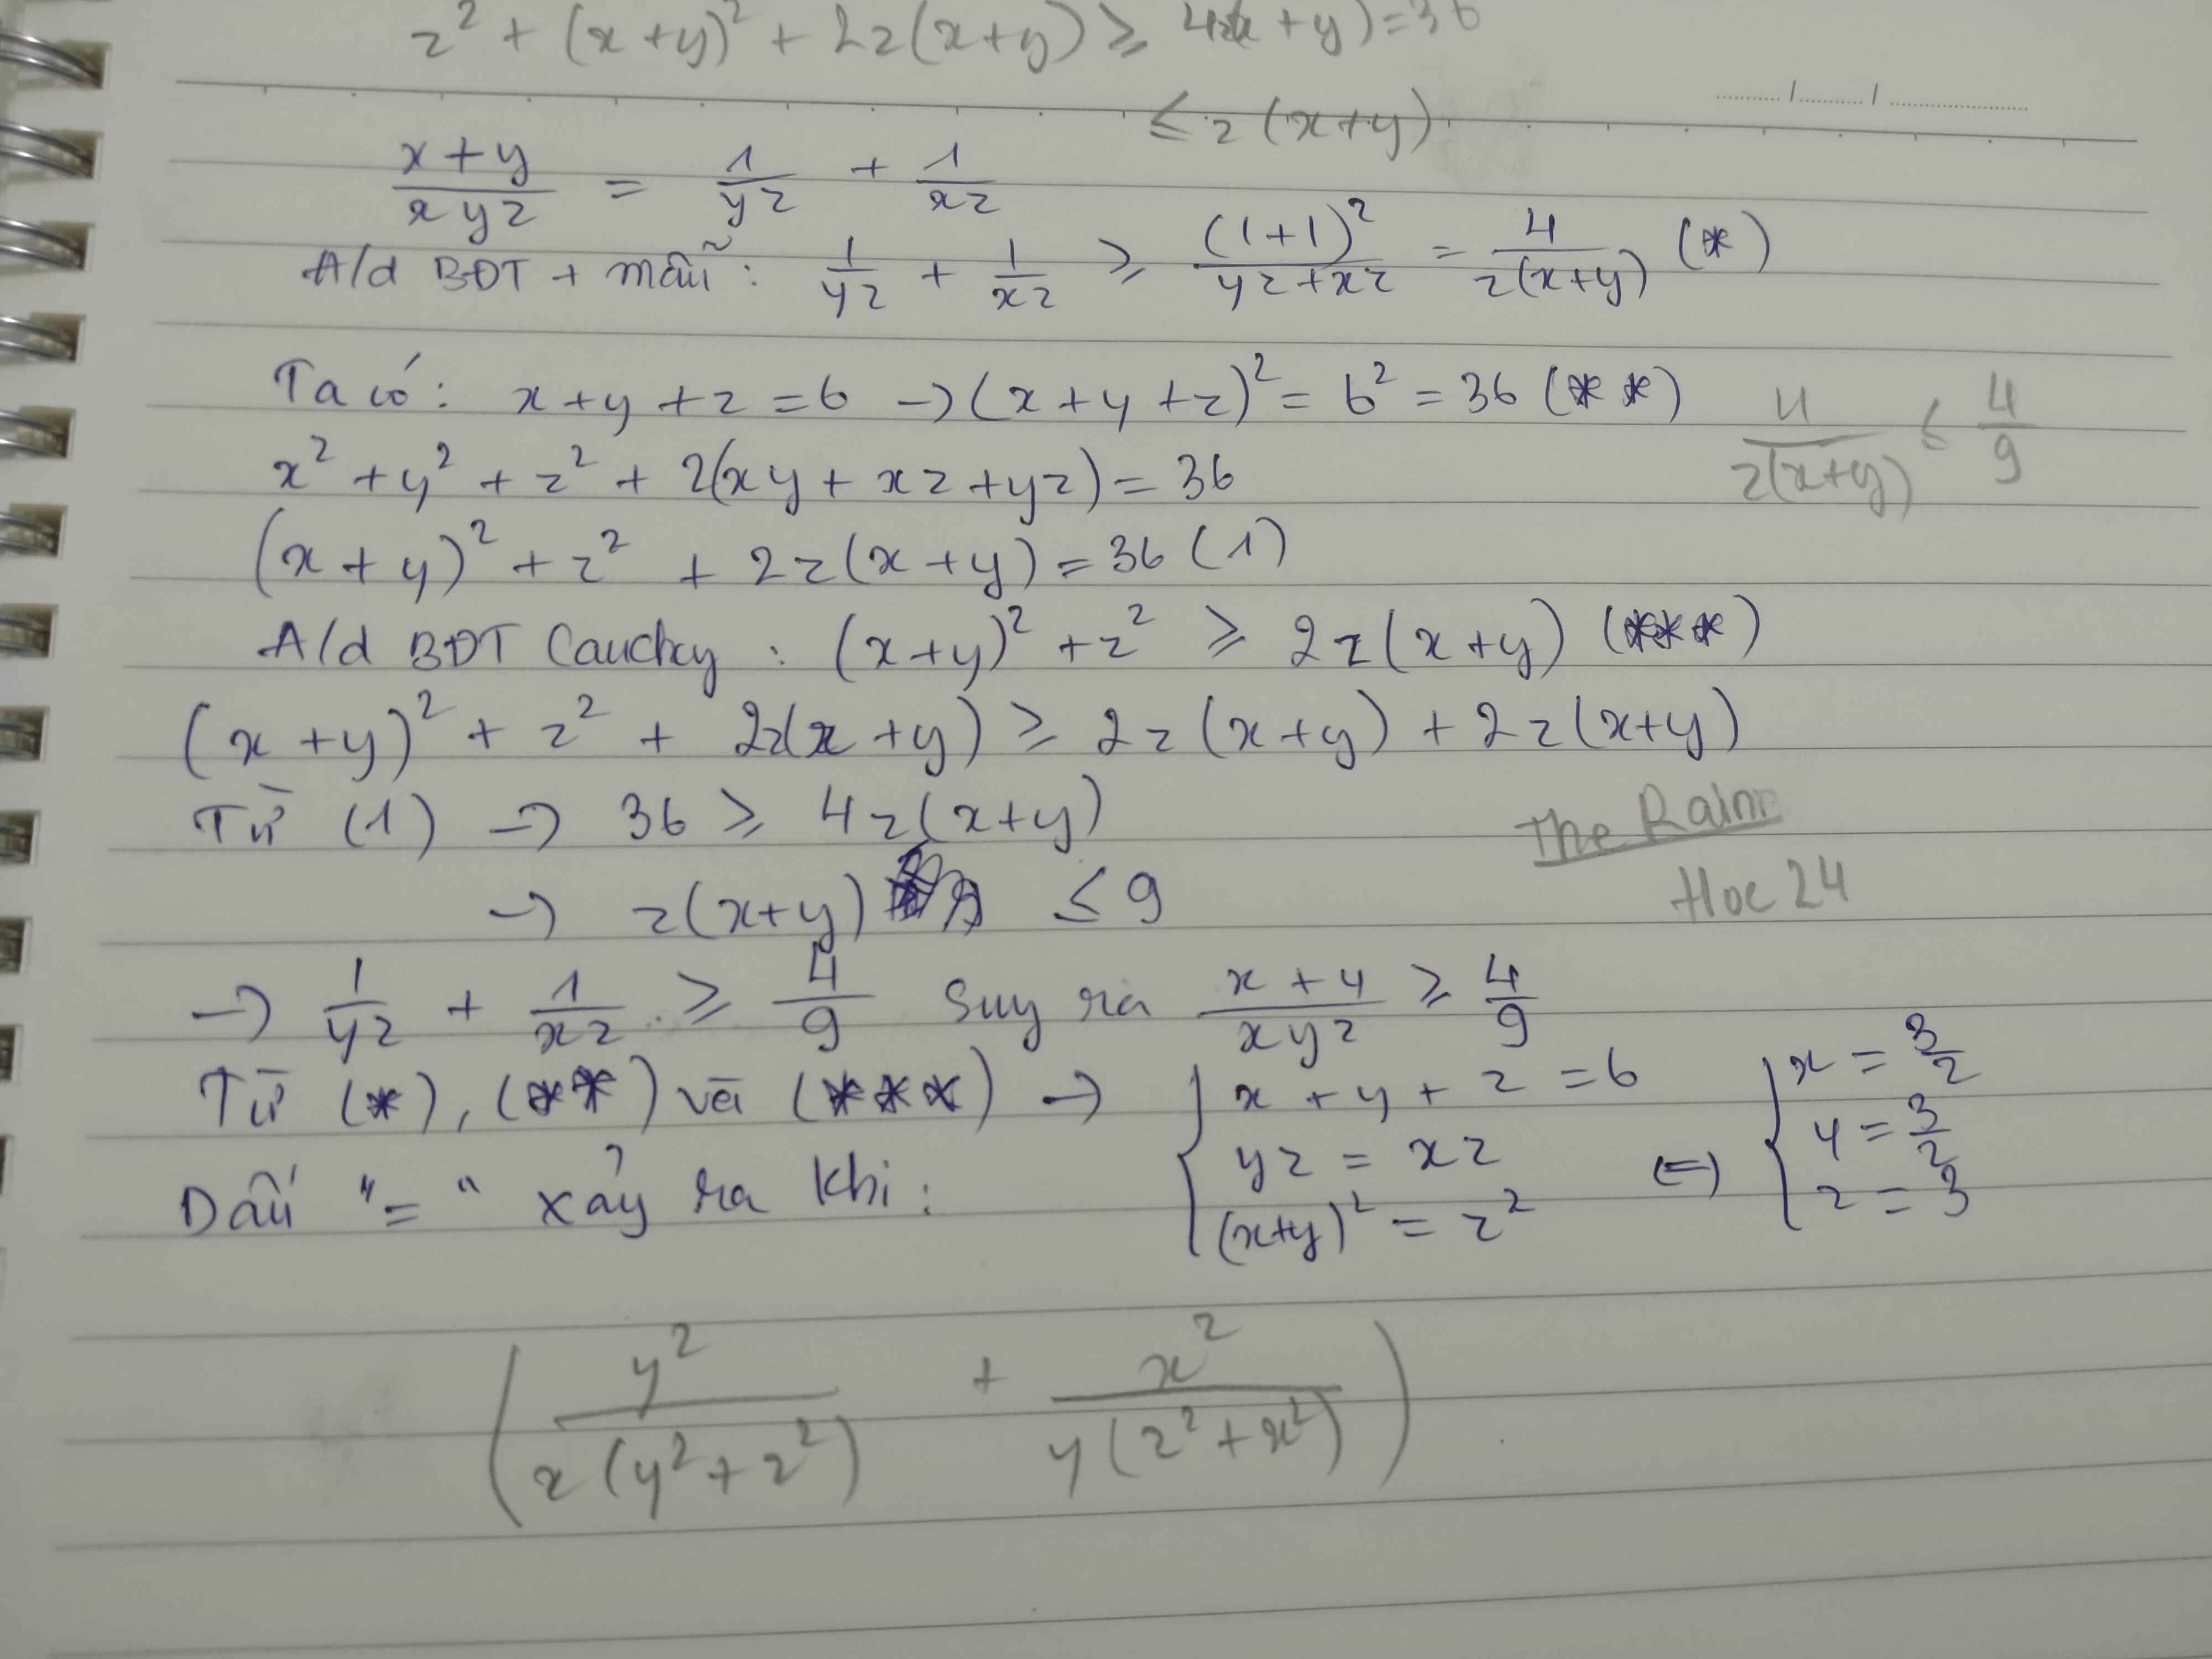 z² + (x+y)² + 2z(x+y) ≥ 4z(x+y)=36
≤ z(x+y)
(x+y)/(xyz) = 1/(yz) + 1/(xz)
A/d BĐT + mẫu : 1/(yz) + 1/(xz) ≥ (1+1)²/(yz+xz) = 4/(z(x+y)) (*)
Ta có: x+y+z=6 → (x+y+z)² = 6² = 36 (**)
4/(z(x+y)) ≤ 4/9
x² + y² + z² + 2(xy + xz + yz) = 36
(x+y)² + z² + 2z(x+y) = 36 (1)
A/d BĐT Cauchy : (x+y)² + z² ≥ 2z(x+y) (***)
(x+y)² + z² + 2z(x+y) ≥ 2z(x+y) + 2z(x+y)
Từ (1) → 36 ≥ 4z(x+y)
The Rain
→ z(x+y) ≤ 9
Hoc 24
→ 1/(yz) + 1/(xz) ≥ 4/9 Suy ra (x+y)/(xyz) ≥ 4/9
Từ (*), (**) và (***) → { x+y+z=6
Dấu "=" xảy ra khi:
yz = xz
(x+y)² = z²
⇔ { x = 3/2
y = 3/2
z = 3
( y²/(x(y²+z²)) + x²/(y(z²+x²)) )